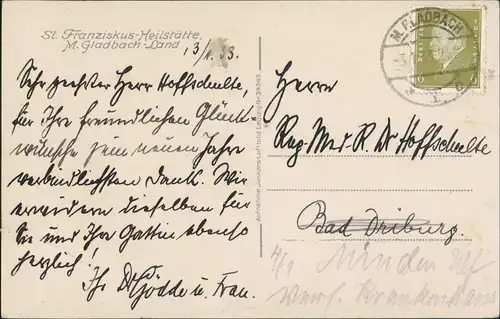 St. Franziskus-Heilstätte,
M. Gladbach-Land
3/1. 33.
Sehr geehrter Herr Hoffschulte,
für Ihre freundlichen Glück-
wünsche zum neuen Jahre
verbindlichsten Dank. Wir
erwidern dieselben für
Sie und Ihre Gattin ebenso
herzlich!
Ihr Dr Gödde u. Frau.
Aufnahme Junkers-Luftbild Leipzig Nr 34343
M. GLADBACH
6 6
Herrn
Reg-Med-R. Dr Hoffschulte
Bad Driburg.
4/1 Minden
Krankenhaus